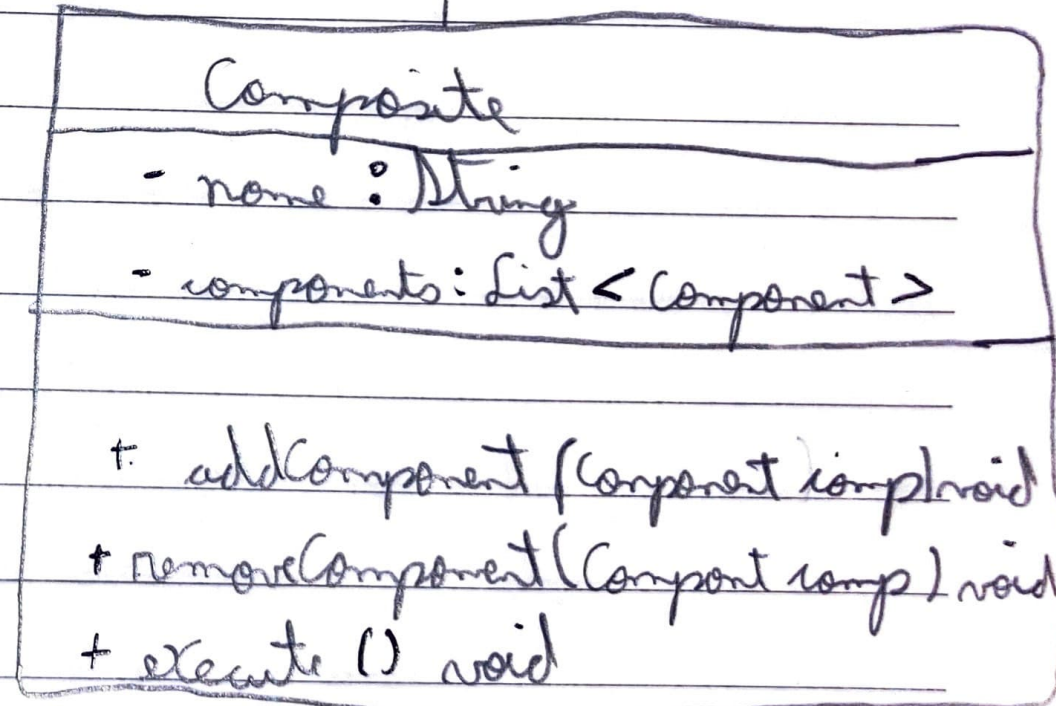 Composite
- name : String
- components : List < Component >
+ addComponent (Component comp) void
+ removeComponent (Compont comp) void
+ execute () void